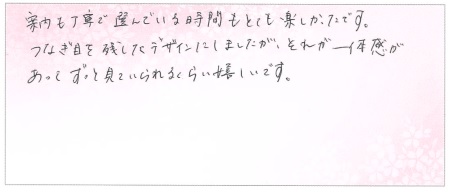 案内も丁寧で選んでいる時間もとても楽しかったです。
つなぎ目を残したデザインにしましたが、それが一体感が
あってずっと見ていられるくらい嬉しいです。